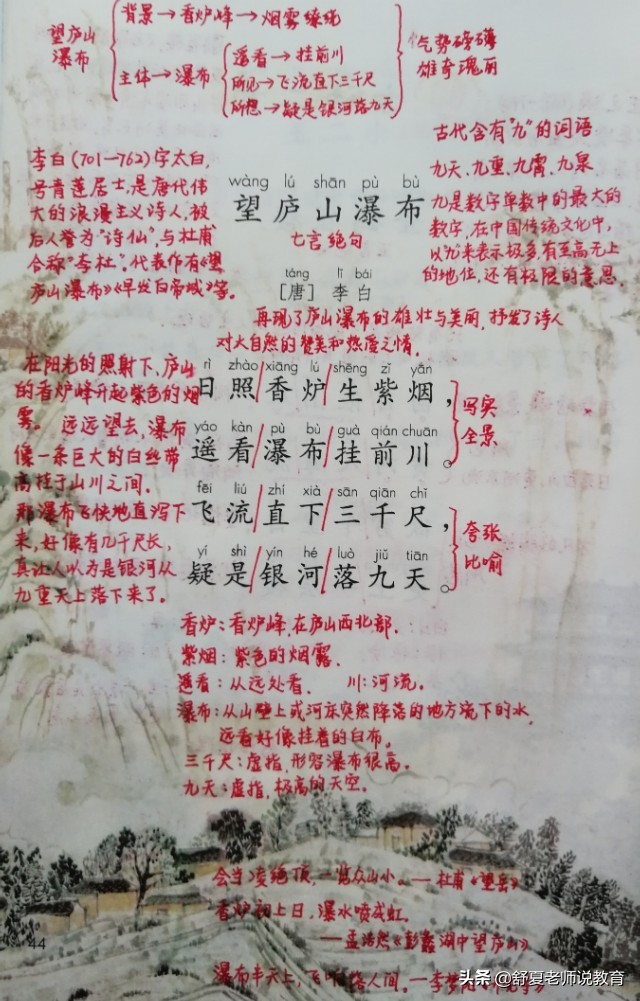 望庐山
瀑布
背景→香炉峰→烟雾缭绕
主体→瀑布
遥看→挂前川
所见→飞流直下三千尺
所想→疑是银河落九天
气势磅礴
雄奇瑰丽
古代含有"九"的词语
九天、九重、九霄、九泉
九是数字单数中的最大的
数字,在中国传统文化中,
以九来表示极多,有至高无上
的地位,还有极限的意思.
李白(701—762)字太白,
号青莲居士,是唐代伟
大的浪漫主义诗人,被
后人誉为"诗仙",与杜甫
合称"李杜".代表作有《望
庐山瀑布》《早发白帝城》等。
wàng lú shān pù bù
望庐山瀑布
七言绝句
táng lǐ bái
[唐] 李白
再现了庐山瀑布的雄壮与美丽,抒发了诗人
对大自然的赞美和热爱之情.
在阳光的照射下,庐山
的香炉峰升起紫色的烟
雾。 远远望去,瀑布
像一条巨大的白丝带
高挂于山川之间.
那瀑布飞快地直泻下
来,好像有几千尺长,
真让人以为是银河从
九重天上落下来了。
rì zhào xiāng lú shēng zǐ yān
日照/香炉/生紫烟,
yáo kàn pù bù guà qián chuān
遥看/瀑布/挂前川。
写实
全景
fēi liú zhí xià sān qiān chǐ
飞流/直下/三千尺,
yí shì yín hé luò jiǔ tiān
疑是/银河/落九天。
夸张
比喻
香炉:香炉峰,在庐山西北部.
紫烟:紫色的烟雾.
遥看:从远处看. 川:河流。
瀑布:从山壁上或河床突然降落的地方流下的水,
远看好像挂着的白布。
三千尺:虚指,形容瀑布很高。
九天:虚指,极高的天空。
会当凌绝顶,一览众山小。—杜甫《望岳》
香炉初上日,瀑水喷成虹.
—孟浩然《彭蠡湖中望庐山》
瀑布半天上,飞响落人间,—李梦阳
44
头条 @舒夏老师说教育